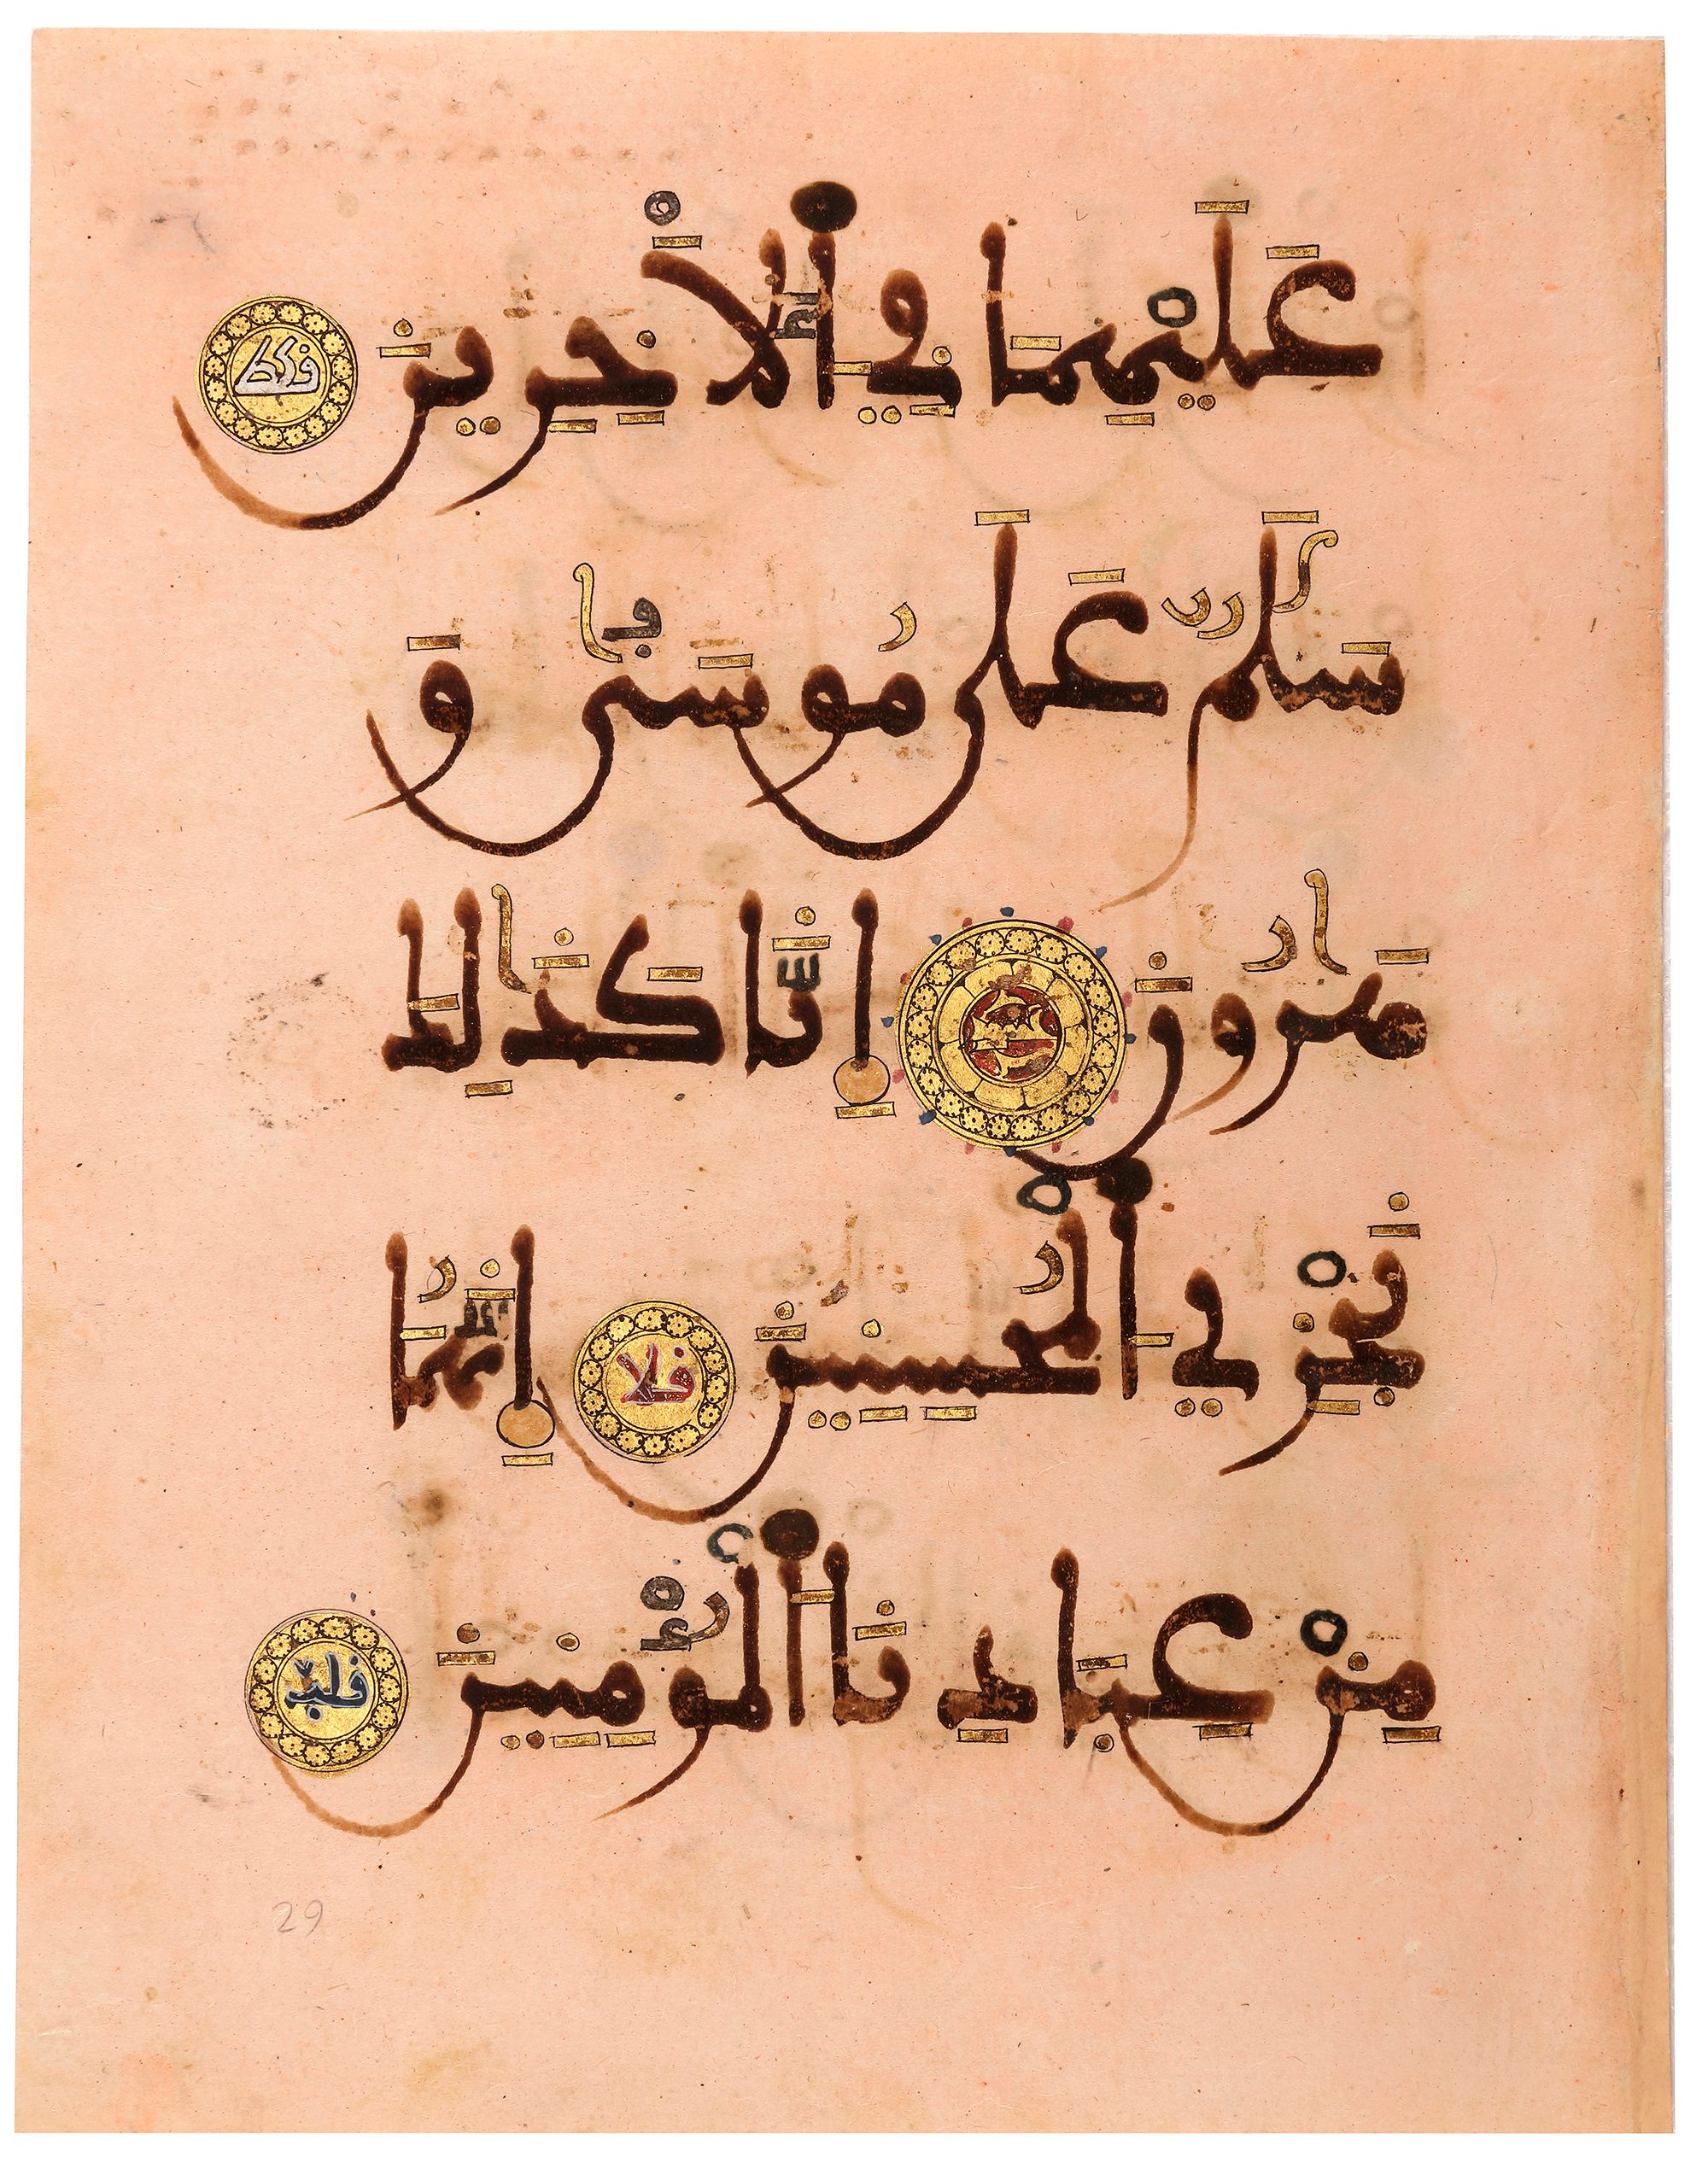 عَلَيْهِمَا فِي اَ۬لَاخِرِينَ فكط
سَلَٰمٌ عَلَىٰ مُوسَىٰ وَ
هَٰرُونَ إِنَّا كَذَٰلِ
نَجْزِي اِ۬لْمُحْسِنِينَ فلا إِنَّهُمَا
مِنْ عِبَادِنَا اَ۬لْمُؤْمِنِينَ فلب
29